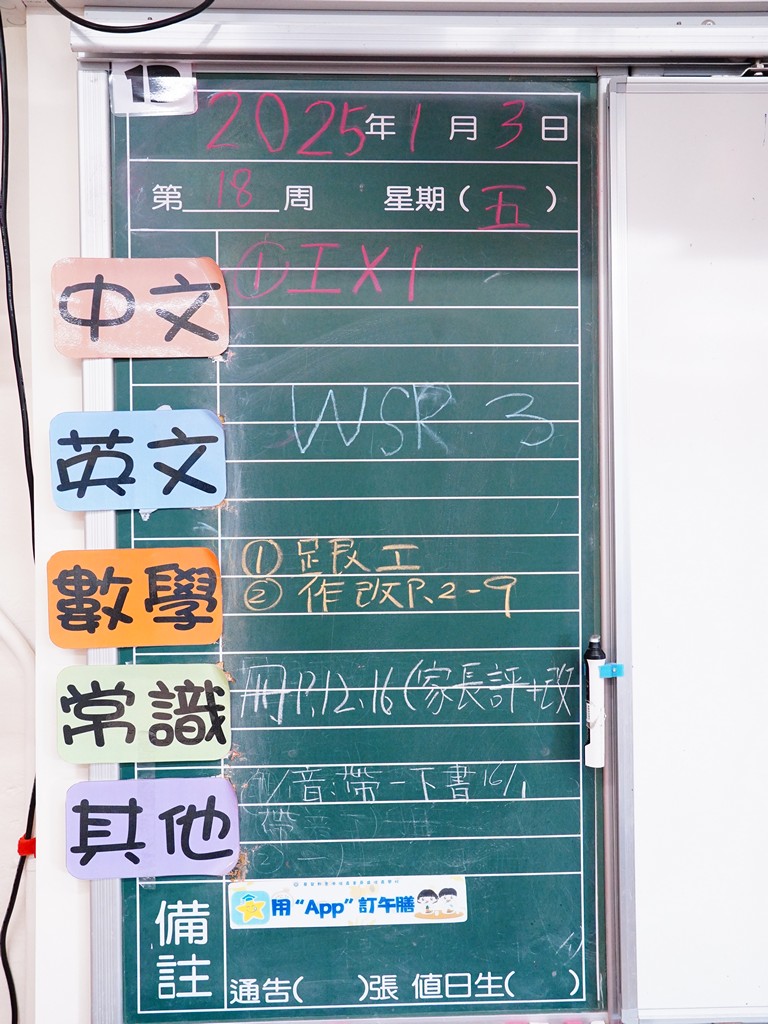 1D
2025年1月3日
第18周 星期(五)
中文 ①工X1
英文 WSR 3
數學 ①段工
②作改P.2-9
常識 冊P.12、16(家長評+改
其他 音:帶一下書16/1
備註 用“App”訂午膳
通告( )張 值日生( )